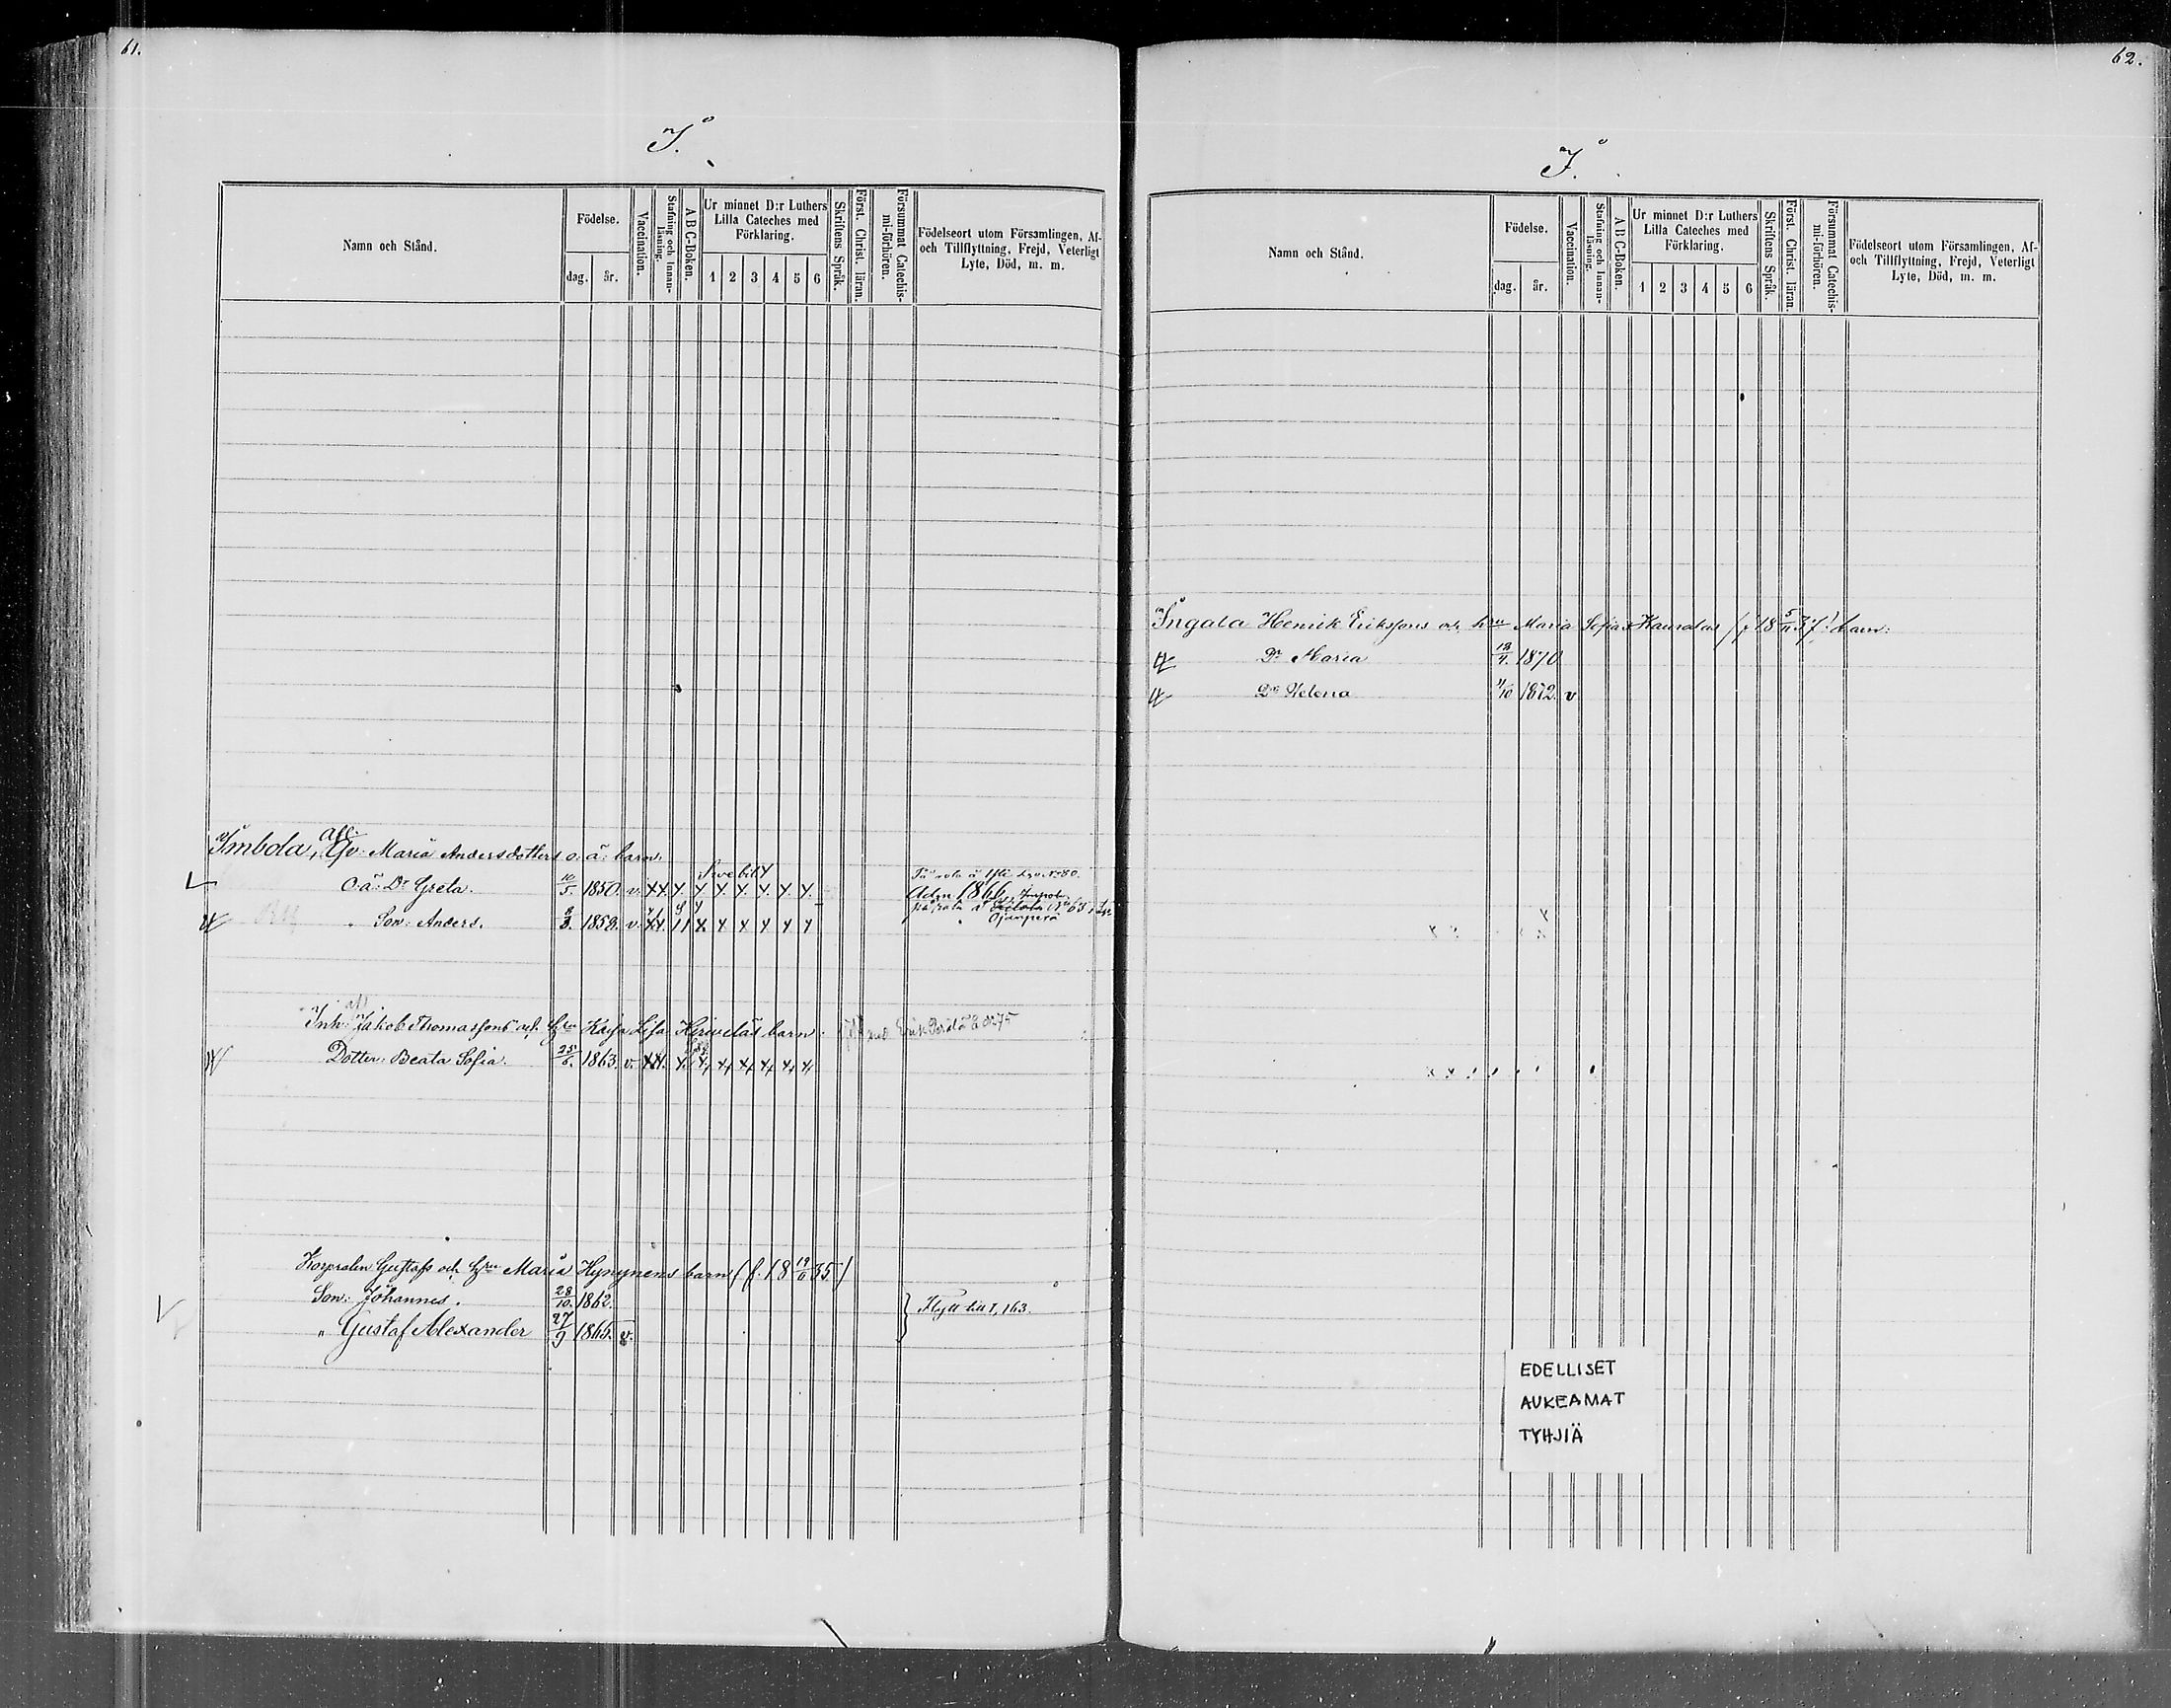 61.
I.
Namn och Stånd.
Födelse.
dag.
år.
Vaccination.
Stafning och Innan-läsning.
A B C-Boken.
Ur minnet D:r Luthers
Lilla Cateches med
Förklaring.
1 2 3 4 5 6
Skriftens Språk.
Först. Christ. läran.
Försummat Catechis-
mi-förhören.
Födelseort utom Församlingen, Af-
och Tillflyttning, Frejd, Veterligt
Lyte, Död, m. m.
Imbola, Maria Andersdotters o. ä: barn.
O. ä: Dr Greta. 10/5. 1850. v.
1866
Son: Anders. 3. 1858. v.
Ojanperä
Inh: Jakob Thomassons och Kajsa Lisa Hirveläs barn.
Dotter: Beata Sofia. 25/6. 1863. v.
Korpralen Gustafs och hru Maria Hynynens barn (f. 18 19/6 35)
Son: Johannes. 28/10. 1862.
" Gustaf Alexander 27/9 1865. v.
Flytt till I, 163.
62.
I.
Namn och Stånd.
Födelse.
dag.
år.
Vaccination.
Stafning och Innan-läsning.
A B C-Boken.
Ur minnet D:r Luthers
Lilla Cateches med
Förklaring.
1 2 3 4 5 6
Skriftens Språk.
Först. Christ. läran.
Försummat Catechis-
mi-förhören.
Födelseort utom Församlingen, Af-
och Tillflyttning, Frejd, Veterligt
Lyte, Död, m. m.
Ingala Henrik Erikssons och hru Maria Sofia barn:
Dr Maria 1870
Dr Helena 1872. v
EDELLISET
AUKEAMAT
TYHJIÄ